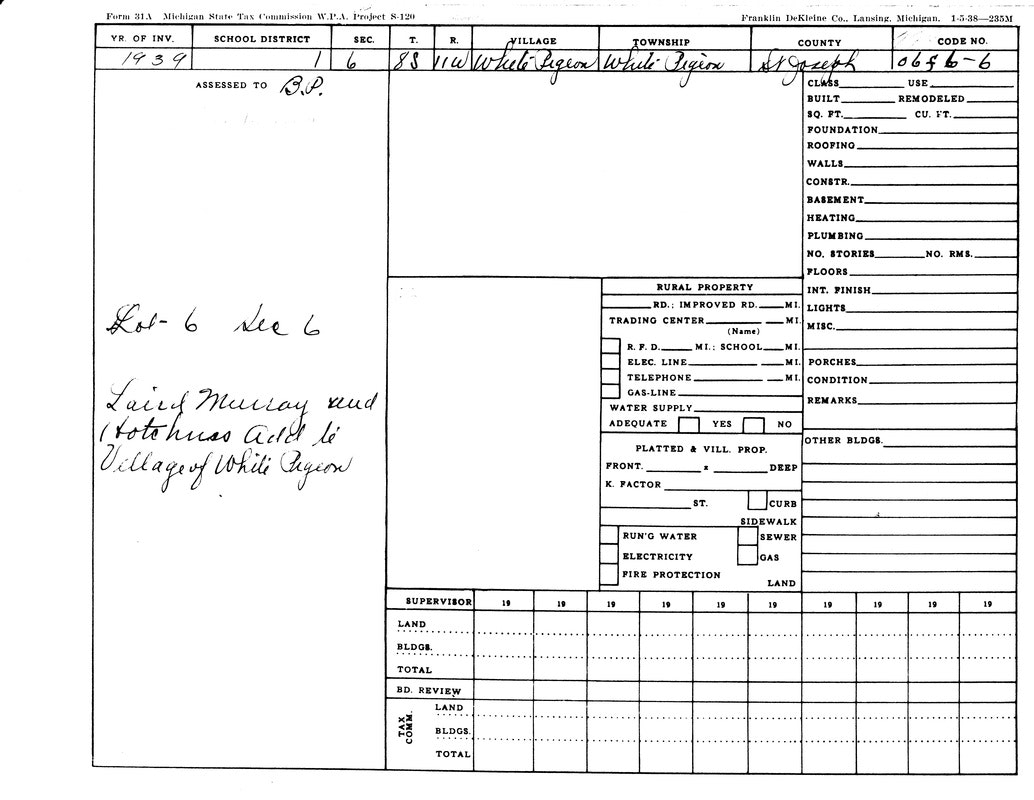 Form 31A Michigan State Tax Commission W.P.A. Project S-120
Franklin DeKleine Co., Lansing, Michigan. 1-5-38—235M
YR. OF INV. SCHOOL DISTRICT SEC. T. R. VILLAGE TOWNSHIP COUNTY CODE NO.
1939 1 6 8S 11W White Pigeon White Pigeon St Joseph
ASSESSED TO B.P.
Lot-6 Sec 6
Laird Murray and
Hotchuss Add to
Village of White Pigeon
RURAL PROPERTY
RD.; IMPROVED RD. MI.
TRADING CENTER MI.
(Name)
R. F. D. MI.; SCHOOL MI.
ELEC. LINE MI.
TELEPHONE MI.
GAS-LINE
WATER SUPPLY
ADEQUATE YES NO
PLATTED & VILL. PROP.
FRONT. x DEEP
K. FACTOR
ST. CURB
SIDEWALK
RUN'G WATER SEWER
ELECTRICITY GAS
FIRE PROTECTION
LAND
CLASS USE
BUILT REMODELED
SQ. FT. CU. FT.
FOUNDATION
ROOFING
WALLS
CONSTR.
BASEMENT
HEATING
PLUMBING
NO. STORIES NO. RMS.
FLOORS
INT. FINISH
LIGHTS
MISC.
PORCHES
CONDITION
REMARKS
OTHER BLDGS.
SUPERVISOR 19 19 19 19 19 19 19 19 19 19
LAND
BLDGS.
TOTAL
BD. REVIEW
TAX COMM.
LAND
BLDGS.
TOTAL